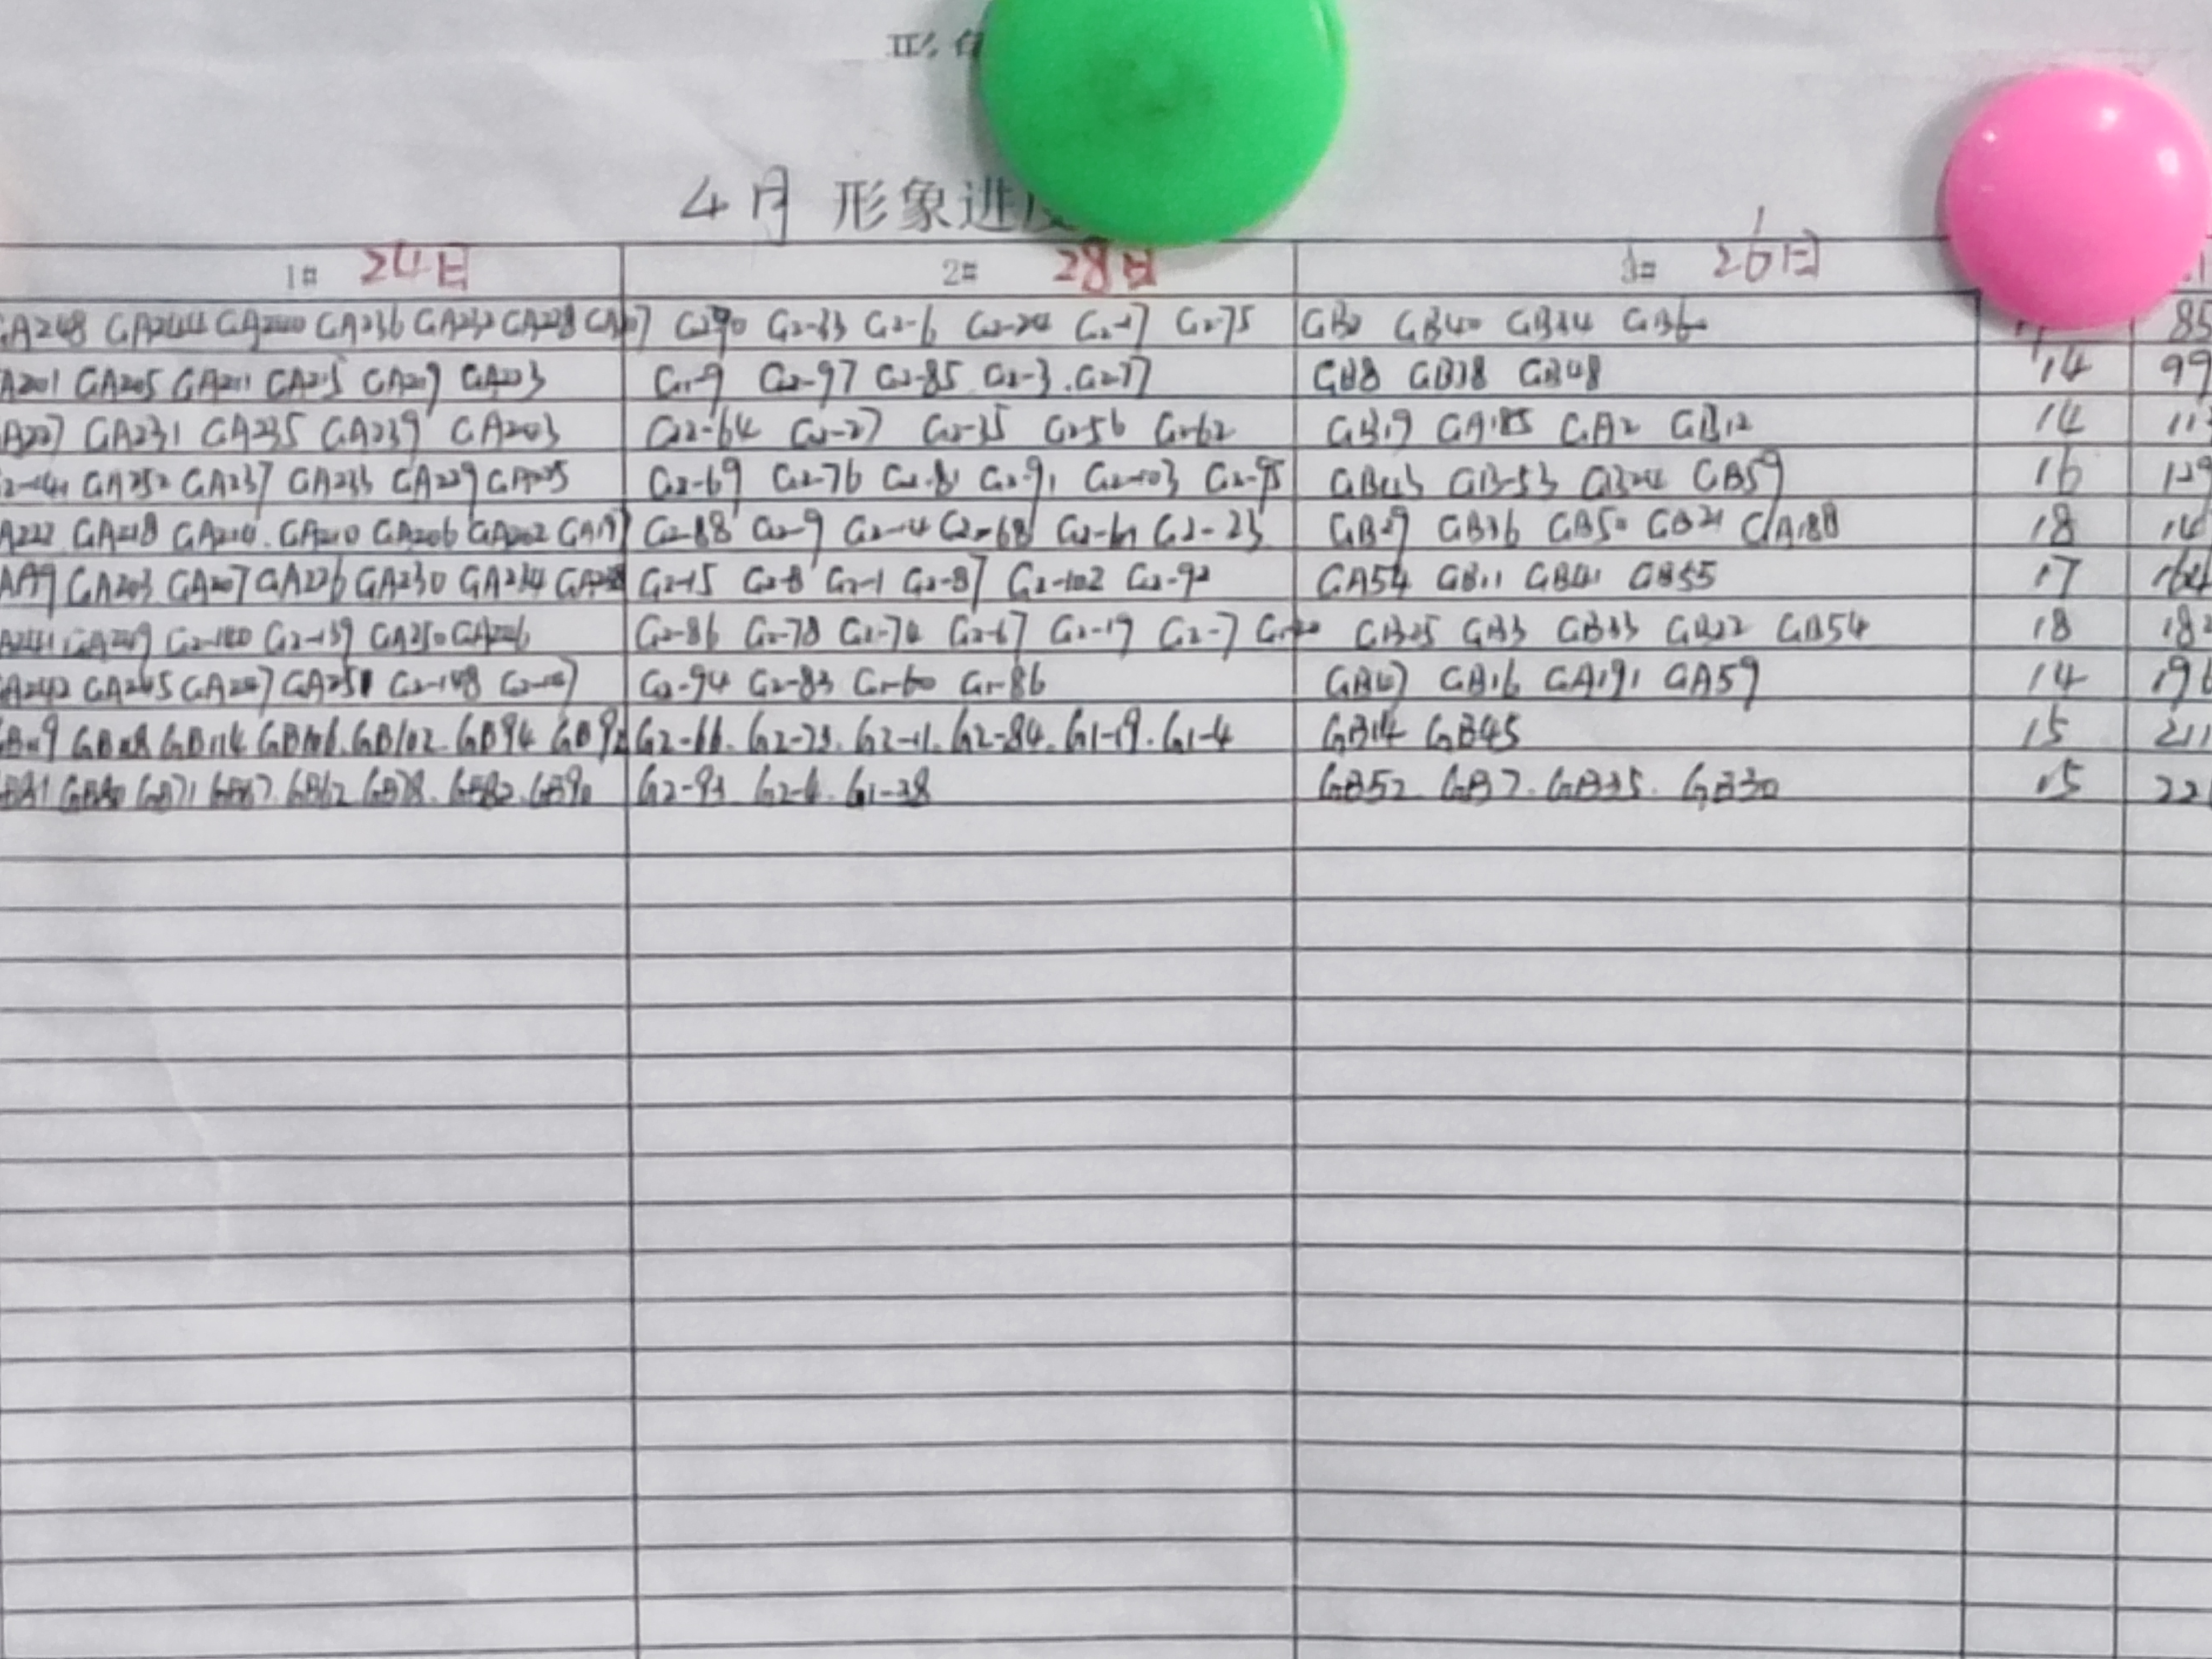 4月 形象进
1# 24日 2# 28日 3# 26日
GA248 GA244 GA240 GA236 GA232 GA228 G2-33 G2-6 G2-24 G2-17 G2-75 GB2 GB40 GB34 85
A201 GA205 GA211 GA215 GA219 GA223 G1-9 G2-97 G2-85 G2-3 G2-77 GB8 GB38 GB48 14 99
A227 GA231 GA235 GA239 GA243 G2-64 G2-27 G2-35 G2-56 G2-62 GB19 GA185 GA2 GB12 14
GA252 GA237 GA233 GA229 GA225 G2-69 G2-76 G2-81 G2-91 G2-103 G2-95 GB43 GB-53 GB24 GB59 16 129
A222 GA218 GA214. GA210 GA206 GA202 G2-88 G2-9 G2-14 G2-68 G2-61 G2-23 GB29 GB36 GB50 GB21 GA188 18
GA203 GA207 GA226 GA230 GA234 G2-15 G2-8 G2-1 G2-87 G2-102 G2-92 GA54 GB11 GB41 GB55 17 164
A241 GA249 G2-140 G2-139 GA250 GA246 G2-86 G2-78 G2-74 G2-67 G2-17 G2-7 GB25 GB3 GB33 GB22 GB54 18 182
A242 GA245 GA247 GA251 G2-148 G2-94 G2-83 G1-60 G1-86 GB47 GB16 GA191 GA59 14 196
GB114 GB106. GB102. GB94 G2-66. G2-73. G2-11. G2-84. G1-19. G1-4 GB14 GB45 15 211
GB71 GB67. GB62. GB78. GB82. GB90 G2-93 G2-4. G1-38 GB52 GB7. GB35. GB30 15